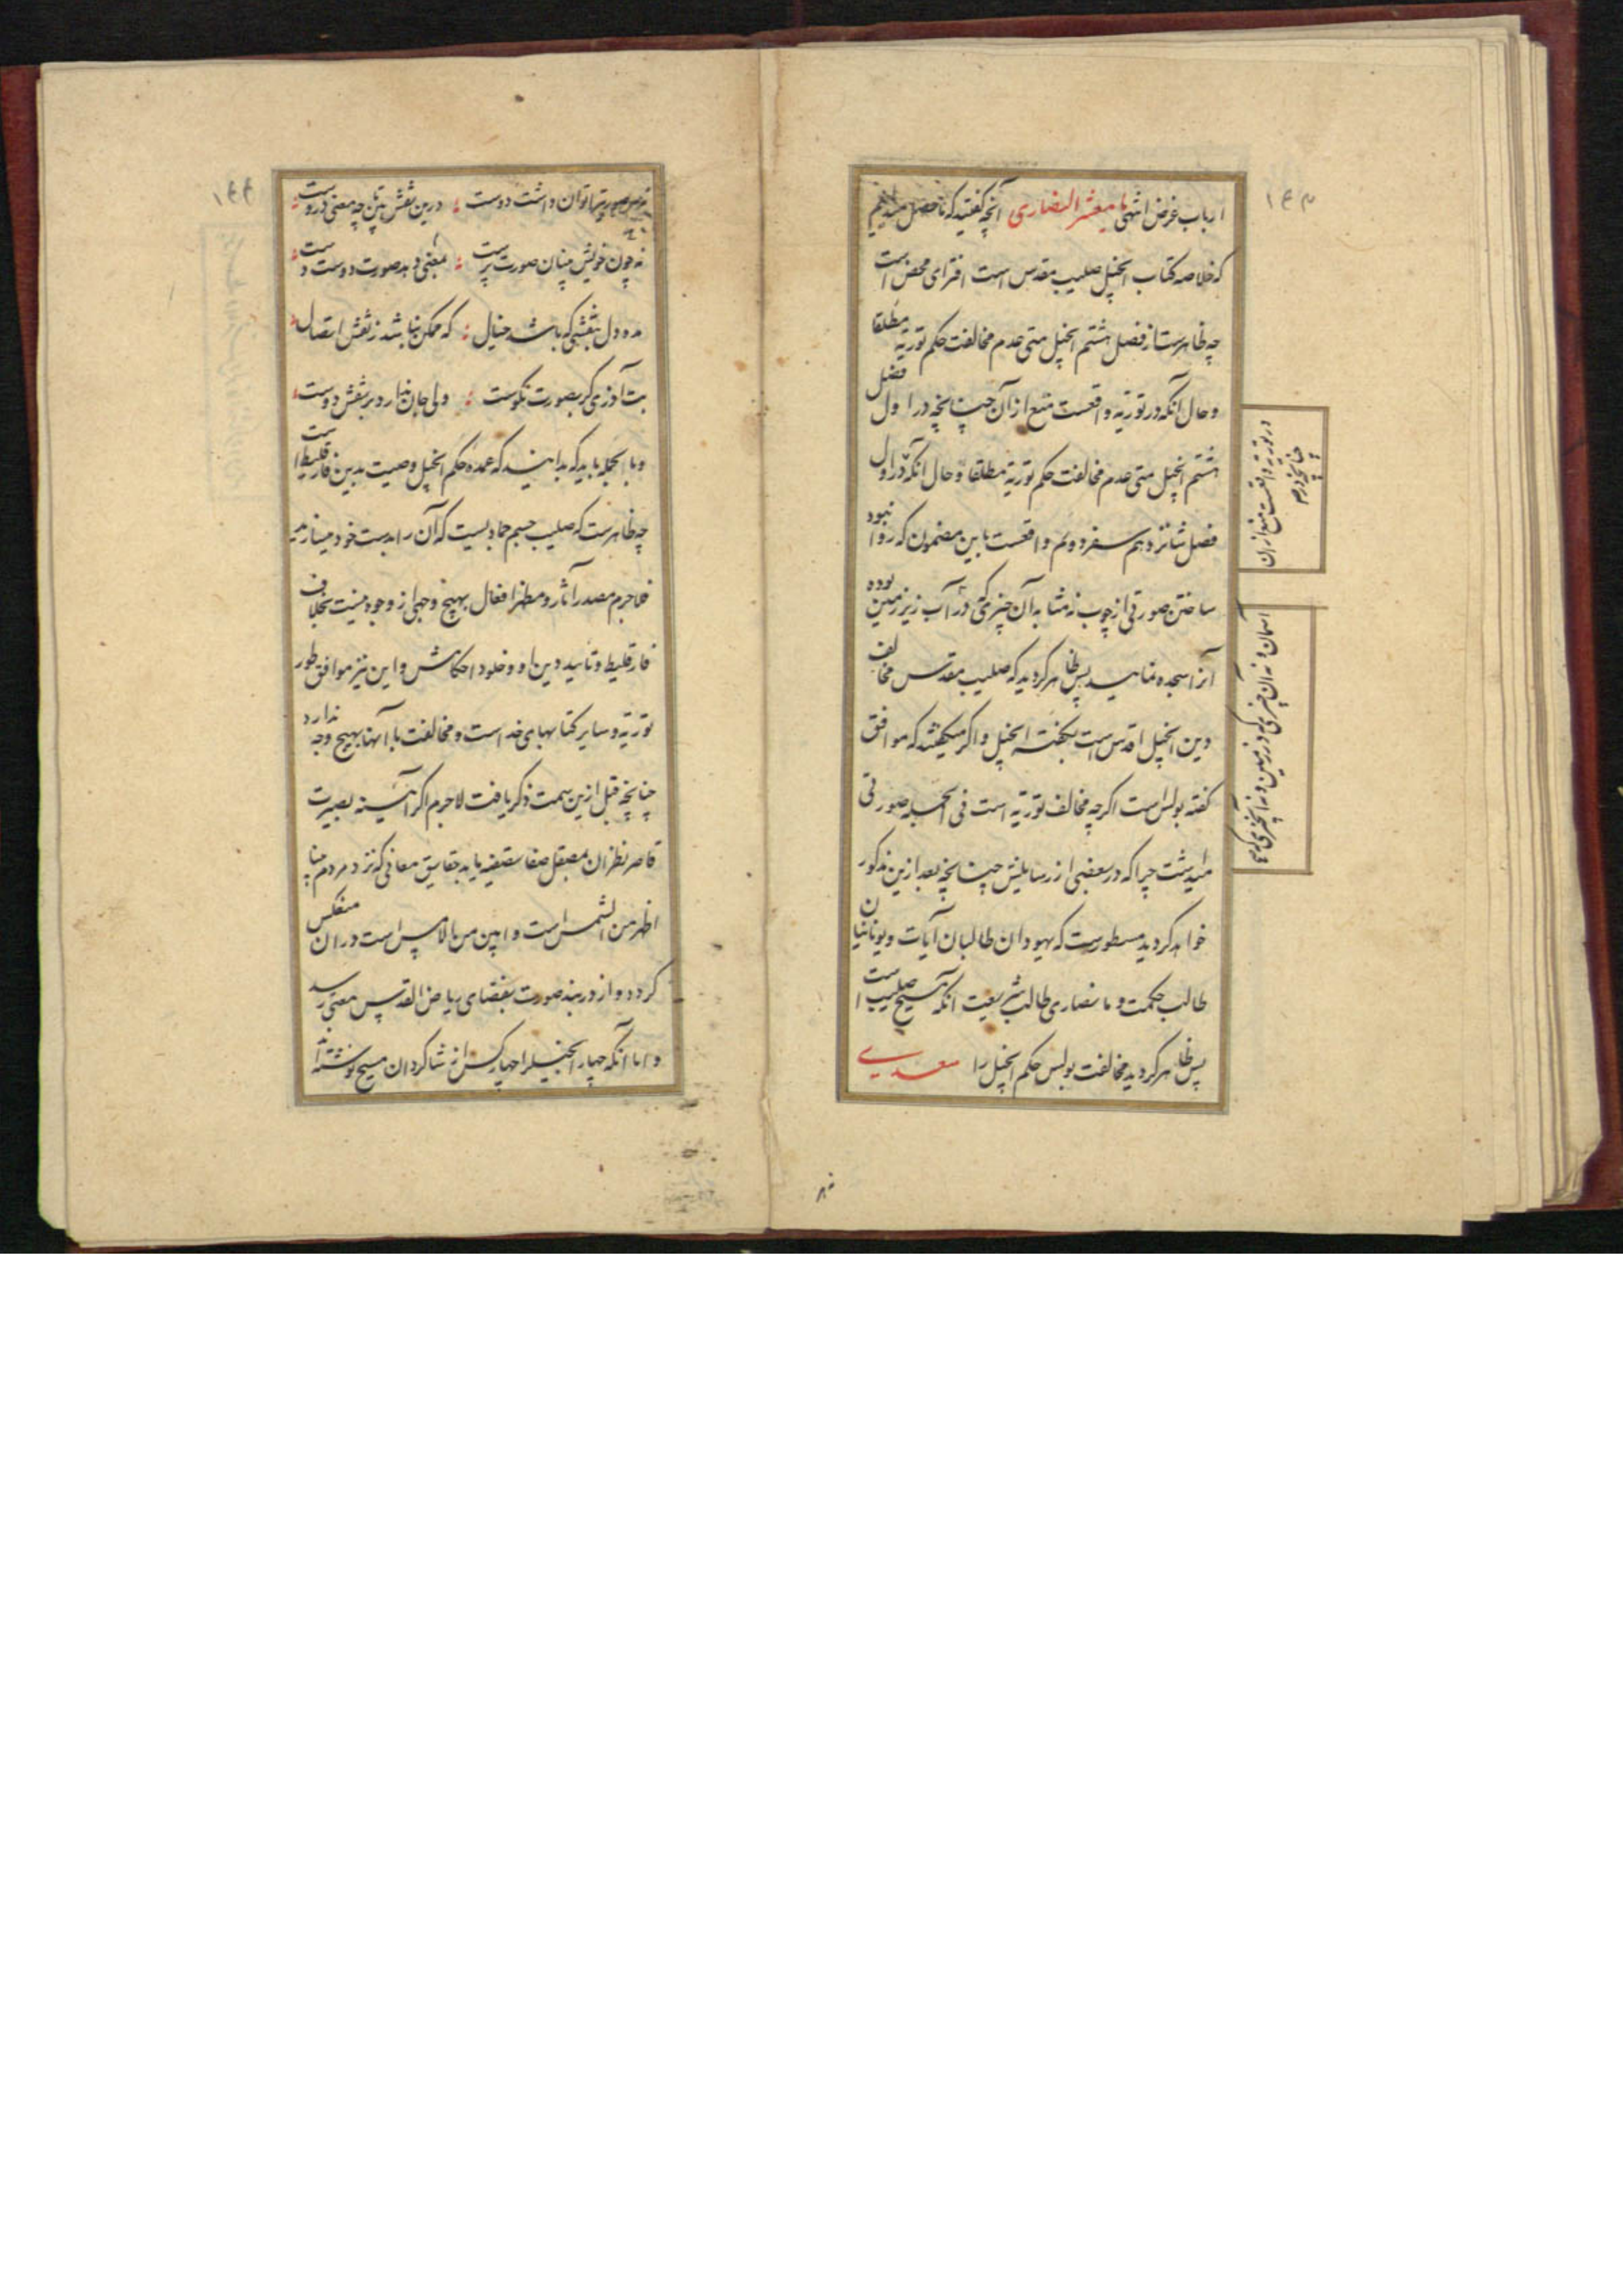 ۱۴۳
ارباب غرض انتهی یا معشر النصاری آنچه گفتید که ما حصل
که خلاصه کتاب انجیل صلیب مقدس است افترای محض است
چه ظاهرست از فصل هشتم انجیل متی عدم مخالفت حکم توریة مطلقا
و حال آنکه در توریة واقعست منع از آن چنانچه در اول فصل
هشتم انجیل متی عدم مخالفت حکم توریة مطلقا و حال آنکه در اول
فصل شانزدهم سفر دویم واقعست باین مضمون که روا نبود
ساختن صورتی از چوب نه مشابه آن چیزی که در آب زیر زمین بوده
آنرا سجده نمایید پس ظاهر گردید که صلیب مقدس مخالف
دین انجیل اقدس است بگفته انجیل و اگر میگفتند که موافق
گفته بولس است اگرچه مخالف توریة است فی الجمله صورتی
میداشت چرا که در بعضی از رسایلش چنانچه بعد ازین مذکور
خواهد گردید مسطورست که یهودان طالبان آیات و یونانیان
طالب حکمت و ما نصاری طالب شریعت آنکه مسیح صلیب است
پس ظاهر گردید مخالفت بولس حکم انجیل را سعدی
در توریة واقعست منع از آن
چنانچه در
آسمان و نه آن چیزی که در زمین و نه آنچیزی که
۱۴۴
توان داشت دوست درین نقش بین چه معنی دروست
نه چون خویش بینان صورت پرست بمعنی دهد صورت دوست دست
مده دل بنقشی که باشد خیال که ممکن نباشد ز نقش اتصال
بت آذری گر بصورت نکوست ولی جان ندارد بر نقش دوست
و بالجمله باید که بدانید که عمده حکم انجیل وصیت بدین فارقلیط است
چه ظاهرست که صلیب جسم جمادیست که آن را بدست خود میسازند
فلاجرم مصدر آثار و مظهر افعال بهیچ وجهی از وجوه نیست بخلاف
فارقلیط و تأیید دین او و خلود احکامش و این نیز موافق طور
توریة و سایر کتابهای خداست و مخالفت با آنها بهیچ وجه ندارد
چنانچه قبل ازین سمت ذکر یافت لاجرم اگر آئینه بصیرت
قاصر نظران بمصقل صفا تصفیه یابد حقایق معانی که نزد مردم بینا
اظهر من الشمس است و ابین من بالامس است در آن منعکس
گردد و از در بند صورت بفضای ریاض القدس معنی رسد
و اما آنکه چهار انجیل را چهار کس از شاگردان مسیح نوشته اند